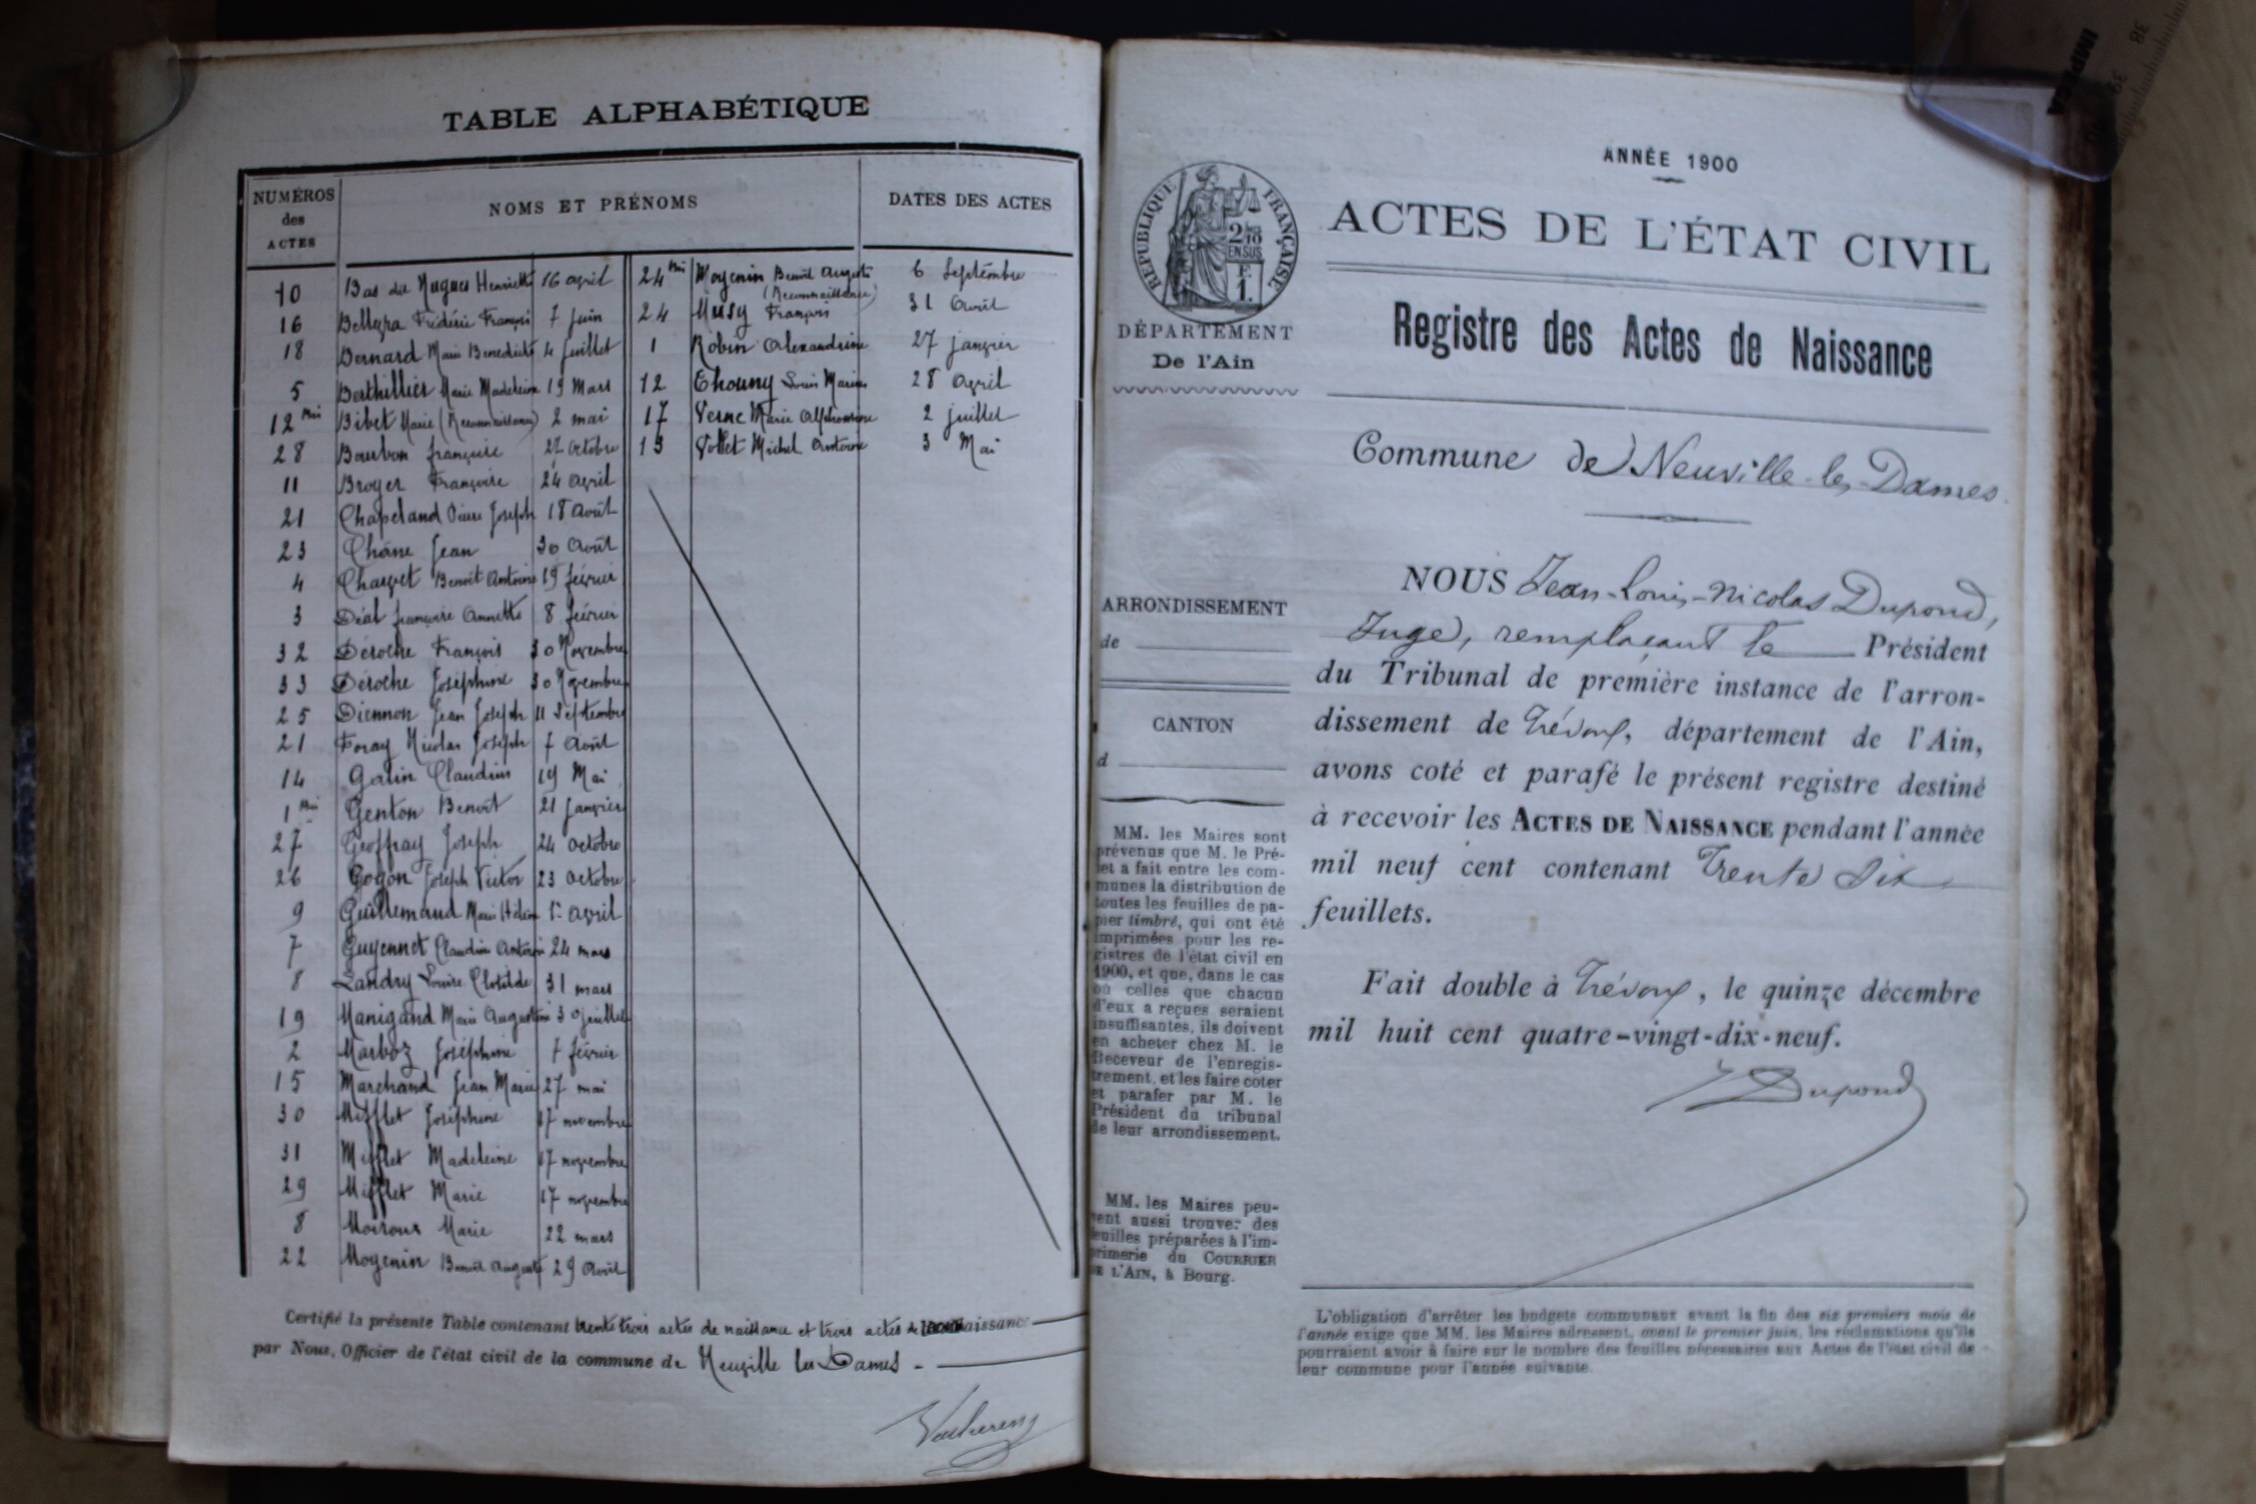 TABLE ALPHABÉTIQUE
NUMÉROS
des
ACTES
NOMS ET PRÉNOMS
DATES DES ACTES
10 Bas dit Hugues Henriette 16 avril
16 Frédéric François 7 juin
18 Bernard Marie Bénédicte 4 juillet
5 Berthillier Marie Madeleine 19 Mars
12 bis Bibet Marie (Reconnaissance) 2 mai
28 Bourbon françoise 27 octobre
11 Broyer Françoise 24 avril
21 Chapeland Pierre Joseph 18 août
23 Chêne Jean 30 Août
4 Charvet Benoît Antoine 19 février
3 Déal françoise Annette 8 février
32 Déroche François 30 Novembre
33 Déroche Joséphine 30 Novembre
25 Diennon Jean Joseph 11 Septembre
21 Foray Nicolas Joseph 7 Août
14 Galin Claudius 19 Mai
1 bis Genton Benoît 21 janvier
27 Geoffray Joseph 24 octobre
26 Gogon Joseph Victor 23 octobre
9 Guillemaud Marie Hélène 1er avril
7 Guyennet Claudius Antoine 24 mars
8 Landry Louise Clotilde 31 mars
19 Manigand Marie Augustine 30 juillet
2 Marboz Joséphine 7 février
15 Marchand Jean Marie 27 mai
30 Mifflet Joséphine 17 novembre
31 Mifflet Madeleine 17 novembre
29 Mifflet Marie 17 novembre
8 Moiroux Marie 22 mars
22 Moyenin Benoît Auguste 29 août
24 bis Moyenin Benoît Auguste 6 Septembre
(Reconnaissance)
24 Musy François 31 Août
1 Robin Alexandrine 27 janvier
12 Thouny Louis Marius 28 avril
17 Verne Marie Alphonsine 2 juillet
13 Vollet Michel Antoine 3 Mai
Certifié la présente Table contenant trente trois actes de naissance et trois actes de reconnaissance
par Nous, Officier de l'état civil de la commune de Neuville les Dames -
ANNÉE 1900
RÉPUBLIQUE FRANÇAISE
2/10
EN SUS
F.
1.
ACTES DE L'ÉTAT CIVIL
DÉPARTEMENT
De l'Ain
Registre des Actes de Naissance
Commune de Neuville-les-Dames
ARRONDISSEMENT
de
CANTON
d
MM. les Maires sont
prévenus que M. le Pré-
fet a fait entre les com-
munes la distribution de
toutes les feuilles de pa-
pier timbré, qui ont été
imprimées pour les re-
gistres de l'état civil en
1900, et que, dans le cas
où celles que chacun
d'eux a reçues seraient
insuffisantes, ils doivent
en acheter chez M. le
Receveur de l'enregis-
trement, et les faire coter
et parafer par M. le
Président du tribunal
de leur arrondissement.
MM. les Maires peu-
vent aussi trouver des
feuilles préparées à l'im-
primerie du COURRIER
DE L'AIN, à Bourg.
NOUS Jean-Louis-Nicolas Dupond,
Juge, remplaçant le Président
du Tribunal de première instance de l'arron-
dissement de Trévoux, département de l'Ain,
avons coté et parafé le présent registre destiné
à recevoir les ACTES DE NAISSANCE pendant l'année
mil neuf cent contenant Trente dix
feuillets.
Fait double à Trévoux, le quinze décembre
mil huit cent quatre-vingt-dix-neuf.
Dupond
L'obligation d'arrêter les budgets communaux avant la fin des six premiers mois de
l'année exige que MM. les Maires adressent, avant le premier juin, les réclamations qu'ils
pourraient avoir à faire sur le nombre des feuilles nécessaires aux Actes de l'état civil de
leur commune pour l'année suivante.